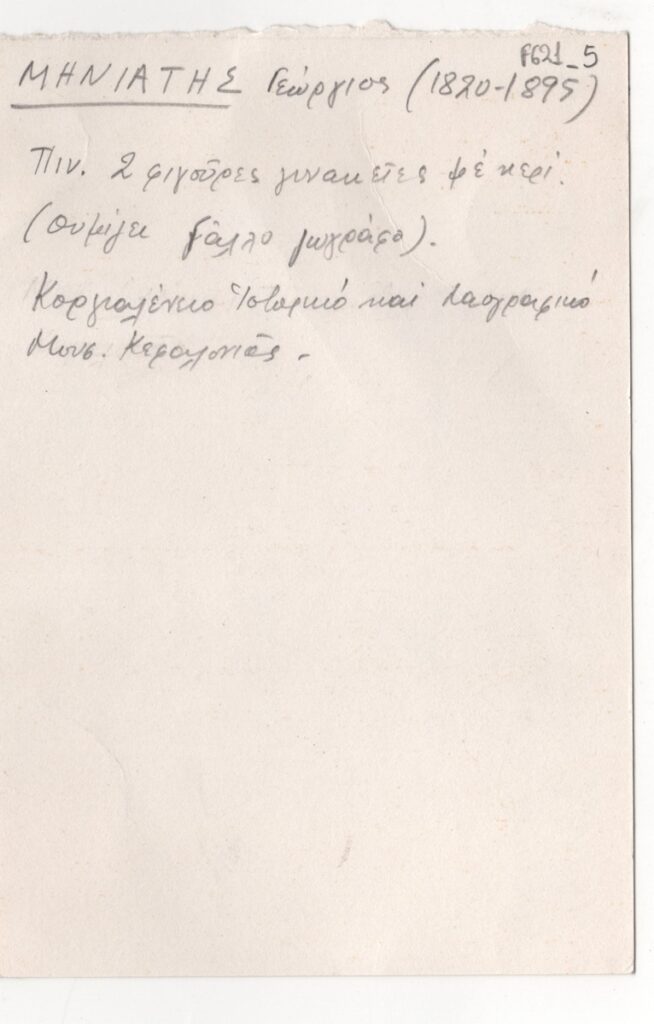 F621_5
ΜΗΝΙΑΤΗΣ Γεώργιος (1820-1895)
Πιν. 2 φιγοῦρες γυναικεῖες μέ κερί.
(Θυμίζει Γάλλο ζωγράφο).
Κοργιαλένειο Ἱστορικό καί Λαογραφικό
Μουσ. Κεφαλονιᾶς.